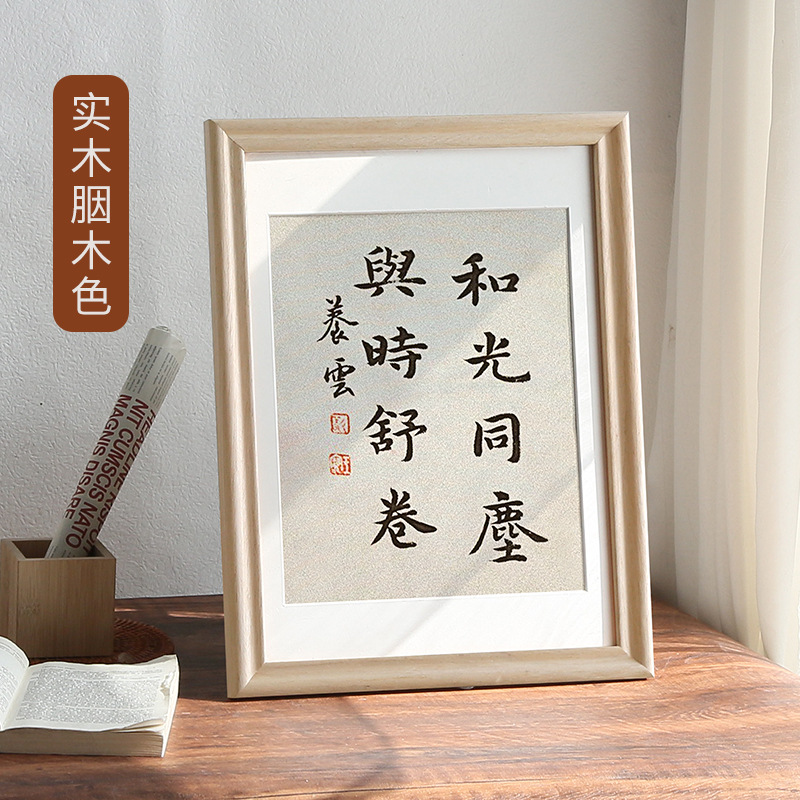 实木胭木色
和光同塵
與時舒卷
養雲
HEADLINE
NIT CUMSCIS NATO
MAGNIS DISARE